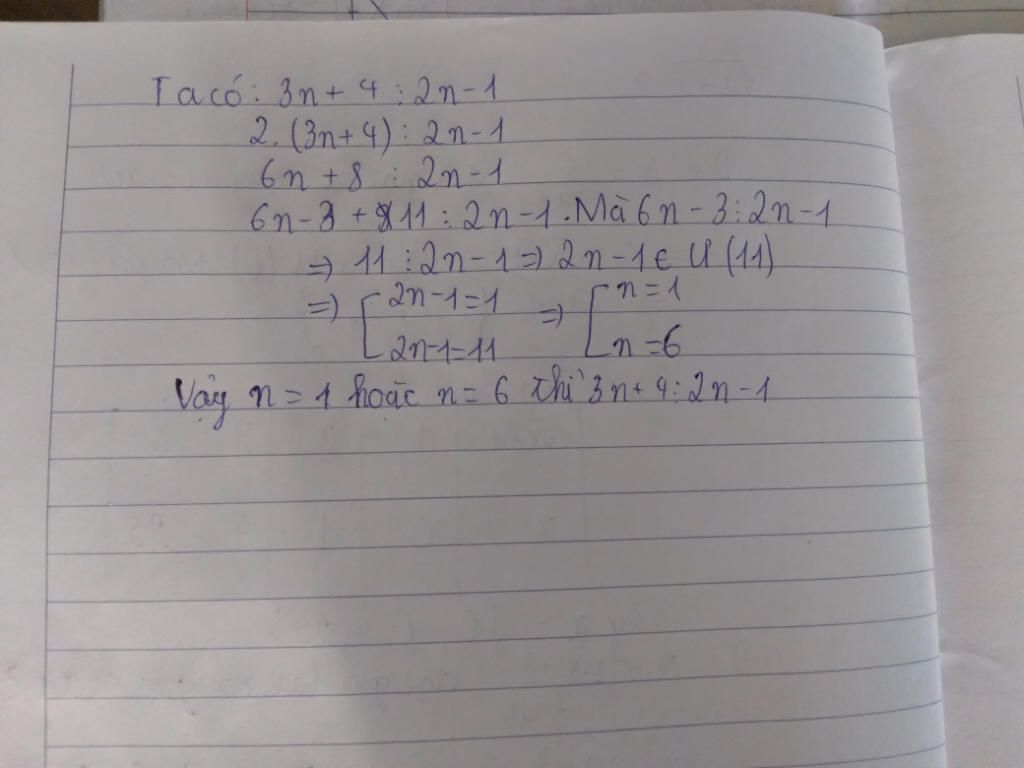 Ta có: 3n + 4 ⋮ 2n - 1
2. (3n+4) ⋮ 2n - 1
6n + 8 ⋮ 2n - 1
6n - 3 + 11 ⋮ 2n - 1. Mà 6n - 3 ⋮ 2n - 1
=> 11 ⋮ 2n - 1 => 2n - 1 ∈ Ư (11)
=> [ 2n - 1 = 1 => [ n = 1
2n - 1 = 11 n = 6
Vậy n = 1 hoặc n = 6 thì 3n + 4 ⋮ 2n - 1